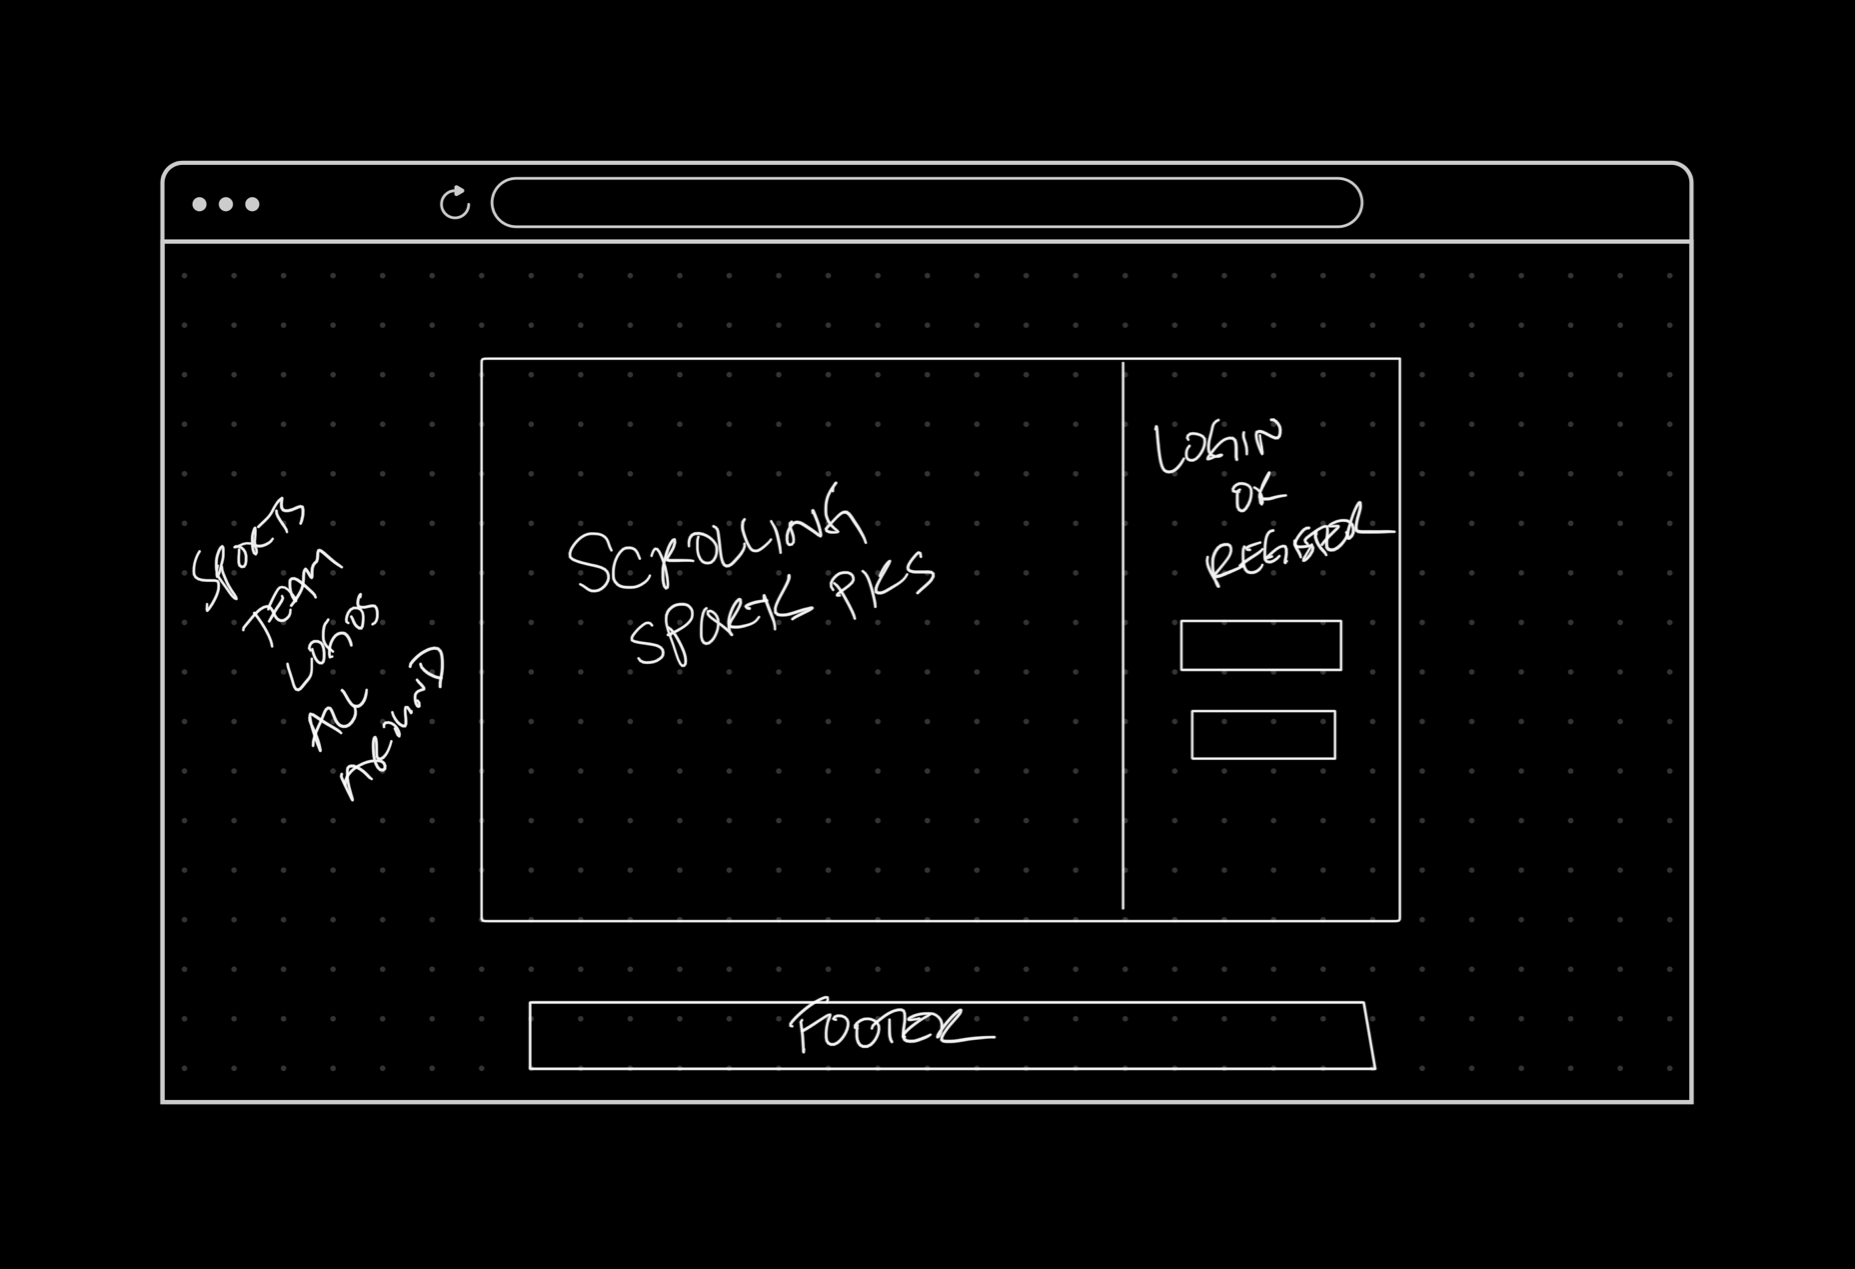 SPORTS
TEAM
LOGOS
ALL
AROUND
SCROLLING
SPORTS PICS
LOGIN
OR
REGISTER
FOOTER